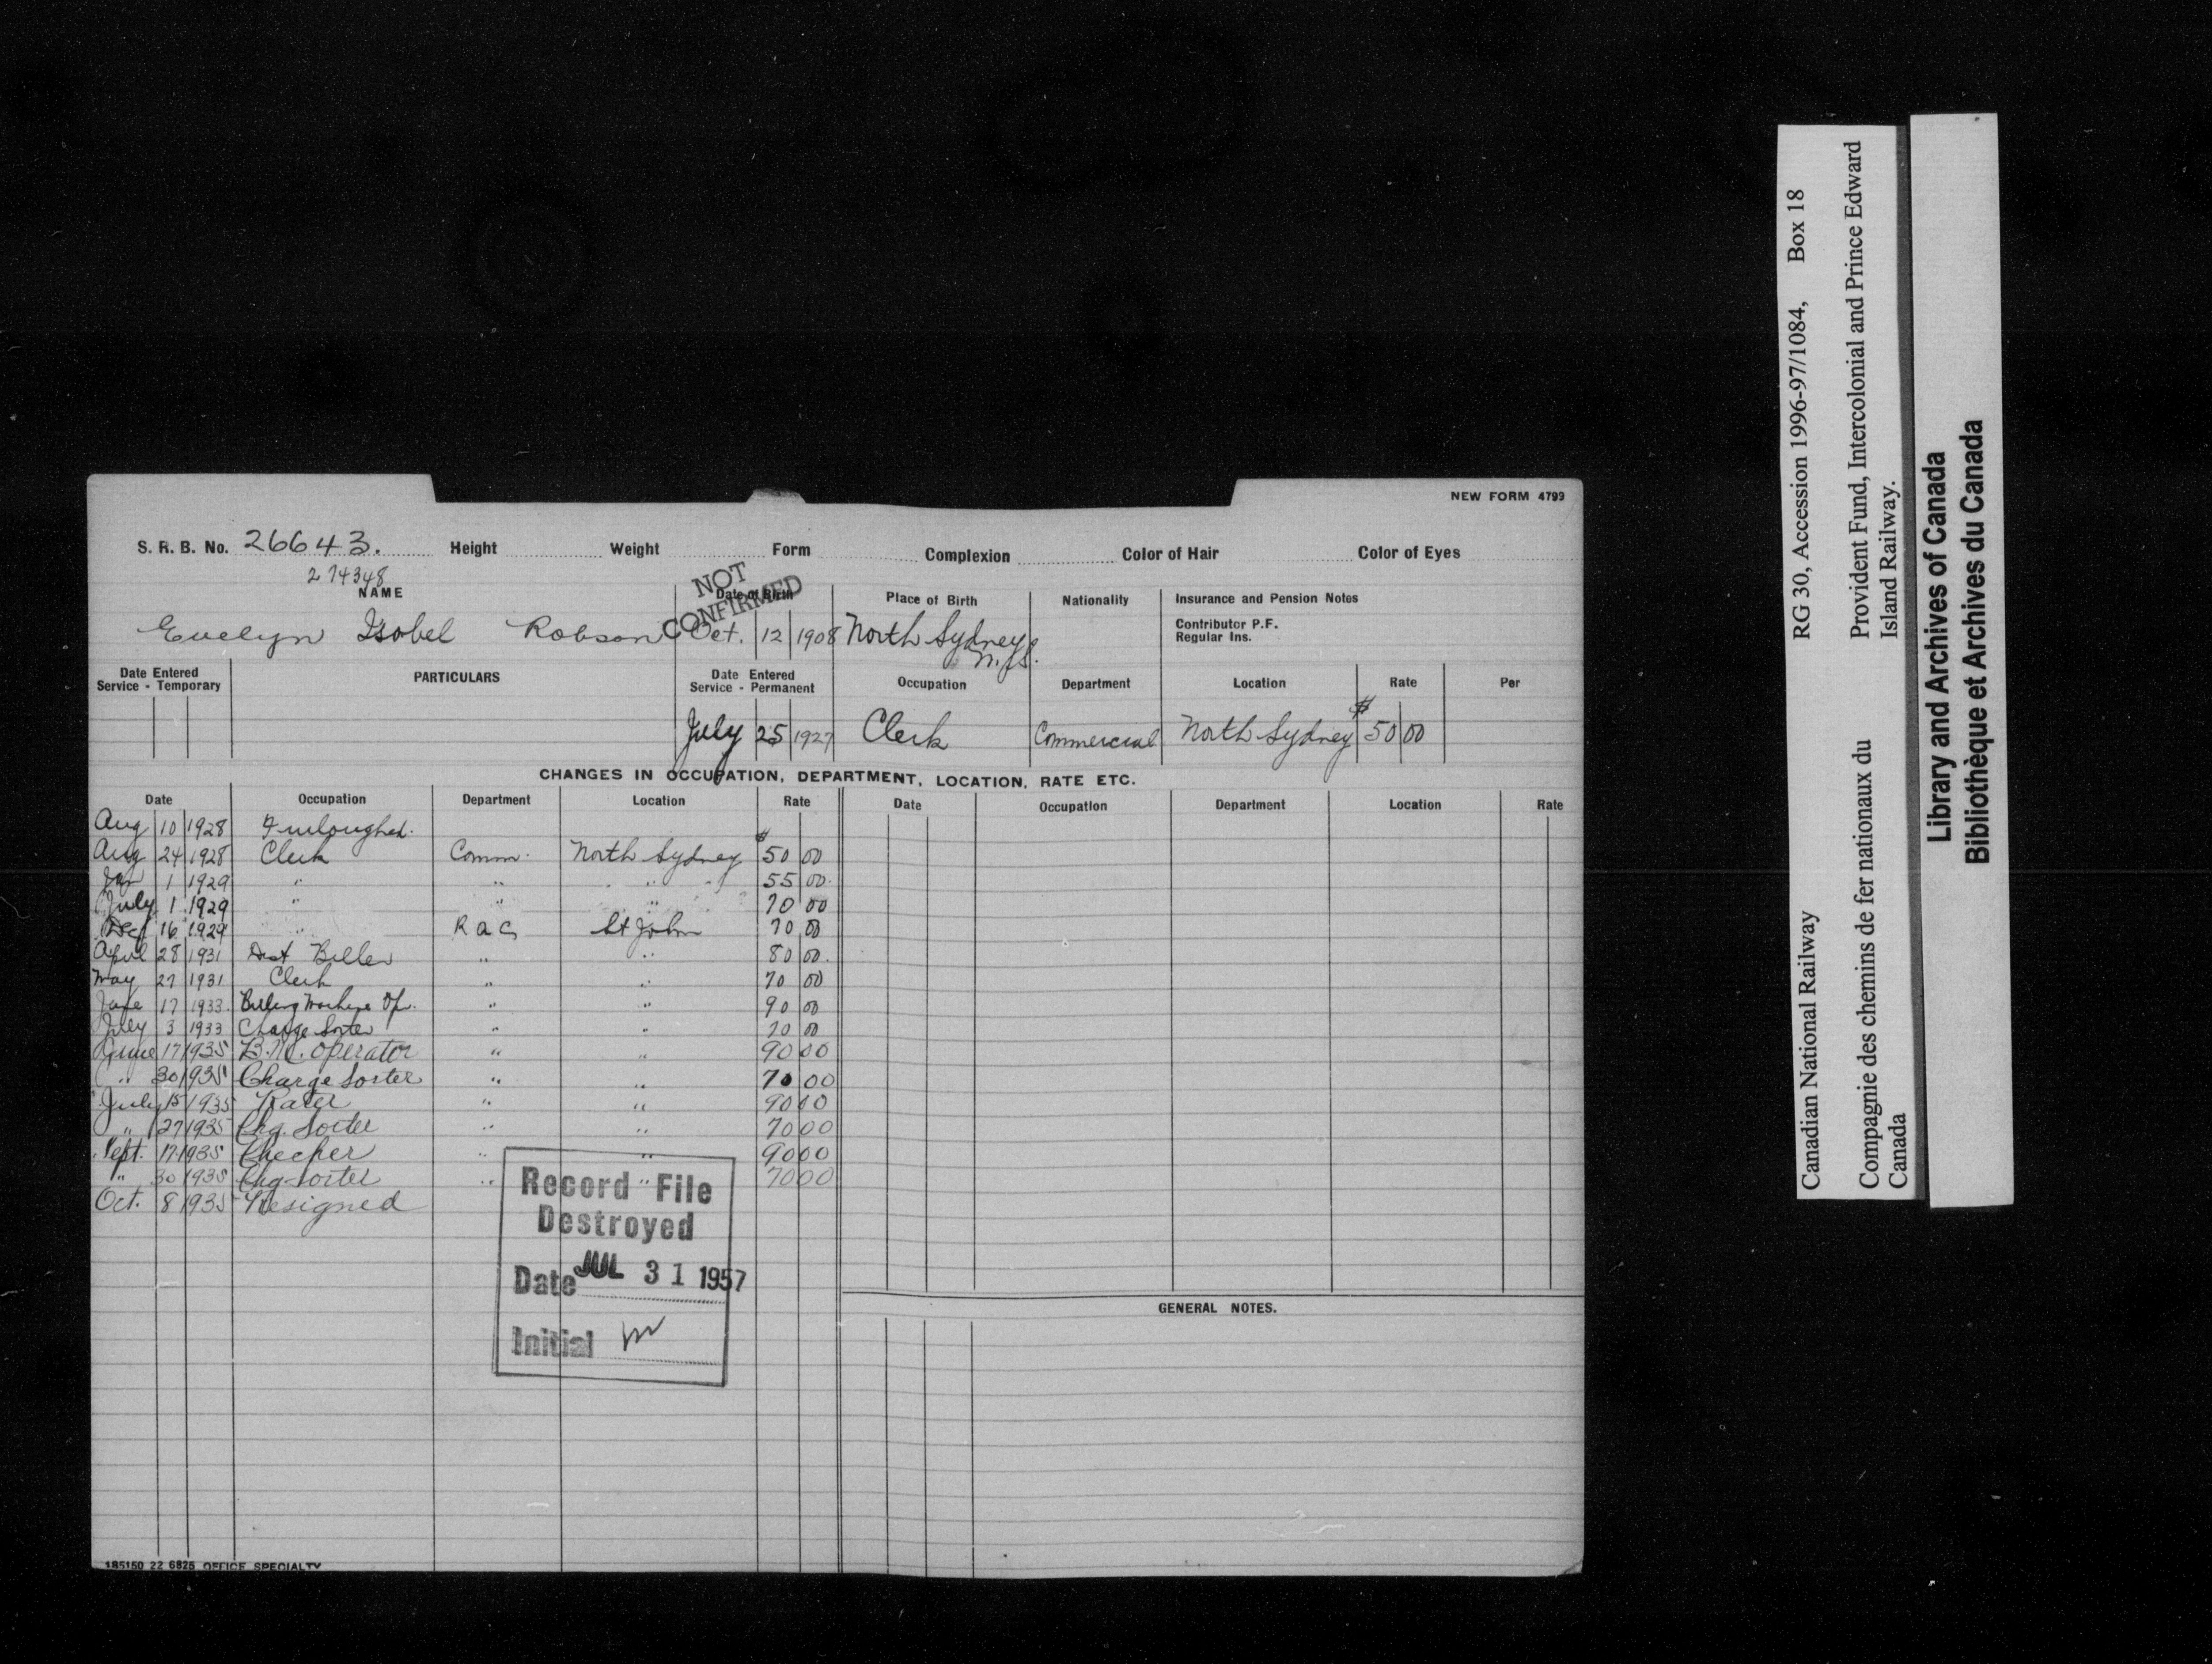 NEW FORM 4799
S. R. B. No. 26643. Height Weight Form Complexion Color of Hair Color of Eyes
274348
NAME Date of Birth Place of Birth Nationality Insurance and Pension Notes
NOT CONFIRMED
Contributor P.F.
Regular Ins.
Evelyn Isobel Robson Oct. 12 1908 North Sydney
N.S.
Date Entered Service - Temporary PARTICULARS Date Entered Service - Permanent Occupation Department Location Rate Per
July 25 1927 Clerk Commercial North Sydney $50 00
CHANGES IN OCCUPATION, DEPARTMENT, LOCATION, RATE ETC.
Date Occupation Department Location Rate Date Occupation Department Location Rate
Aug 10 1928 Furloughed.
Aug 24 1928 Clerk Comm. North Sydney $50 00
Jan 1 1929 " " " 55 00.
July 1 1929 " " " 70 00
16 1929 " R a C St John 70 00
April 28 1931 Biller " " 80 00.
May 27 1931 Clerk " " 70 00
June 17 1933. Billing Machine Op. " " 90 00
July 3 1933 Charge Sorter " " 70 00
June 17 1935 B.M. Operator " " 90 00
" 30 1935 Charge Sorter " " 70 00
July 15 1935 Rater " " 90 00
" 27 1935 Chg. Sorter " " 70 00
Sept. 17 1935 Checker " " 90 00
" 30 1935 Chg Sorter " " 70 00
Oct. 8 1935 Resigned
Record File
Destroyed
Date JUL 31 1957
Initial
GENERAL NOTES.
185150 22 6825 OFFICE SPECIALTY
Canadian National Railway RG 30, Accession 1996-97/1084, Box 18
Compagnie des chemins de fer nationaux du Canada
Provident Fund, Intercolonial and Prince Edward Island Railway.
Library and Archives of Canada
Bibliothèque et Archives du Canada